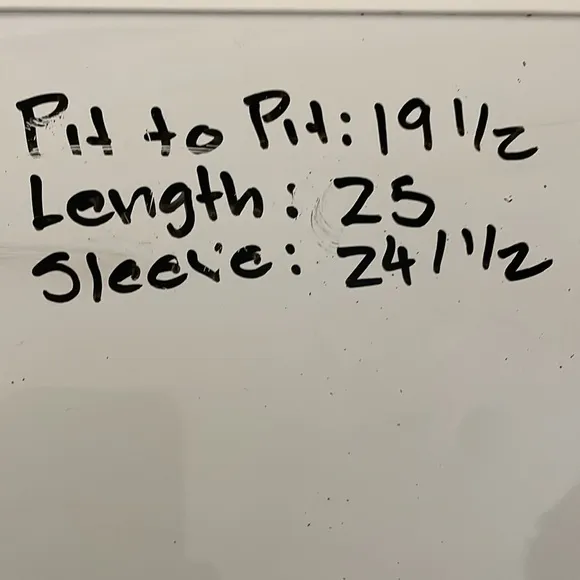 Pit to Pit: 19 1/2
Length: 25
Sleeve: 24 1 1/2